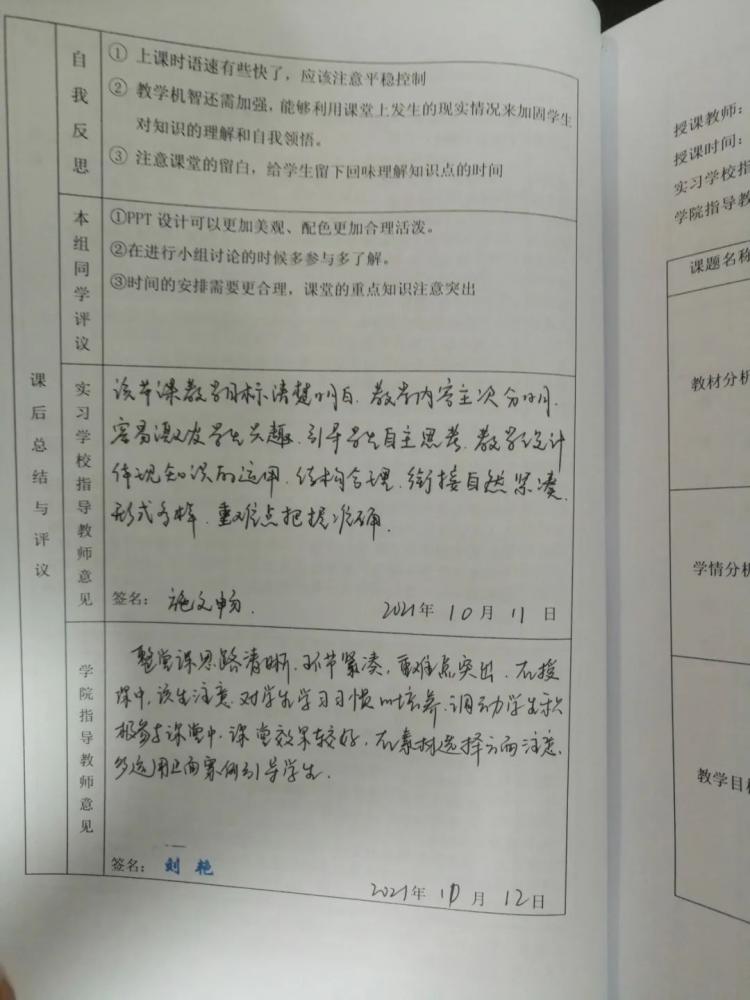 课后总结与评议
自我反思
① 上课时语速有些快了，应该注意平稳控制
② 教学机智还需加强，能够利用课堂上发生的现实情况来加固学生
对知识的理解和自我领悟。
③ 注意课堂的留白，给学生留下回味理解知识点的时间
本组同学评议
①PPT 设计可以更加美观、配色更加合理活泼。
②在进行小组讨论的时候多参与多了解。
③时间的安排需要更合理，课堂的重点知识注意突出
实习学校指导教师意见
该节课教学目标清楚明白，教学内容主次分明，
容易激发学生兴趣，引导学生自主思考，教学设计
体现知识的运用，结构合理，衔接自然紧凑，
形式多样，重难点把握准确。
签名：施文畅
2021年 10月 11日
学院指导教师意见
整堂课思路清晰，环节紧凑，重难点突出，在授
课中，该生注意对学生学习习惯的培养，调动学生积
极参与课堂中，课堂效果较好，在素材选择方面注意
多运用正面案例引导学生。
签名：刘艳
2021年 10月 12日
授课教师：
授课时间：
实习学校指
学院指导教
课题名称
教材分析
学情分析
教学目标